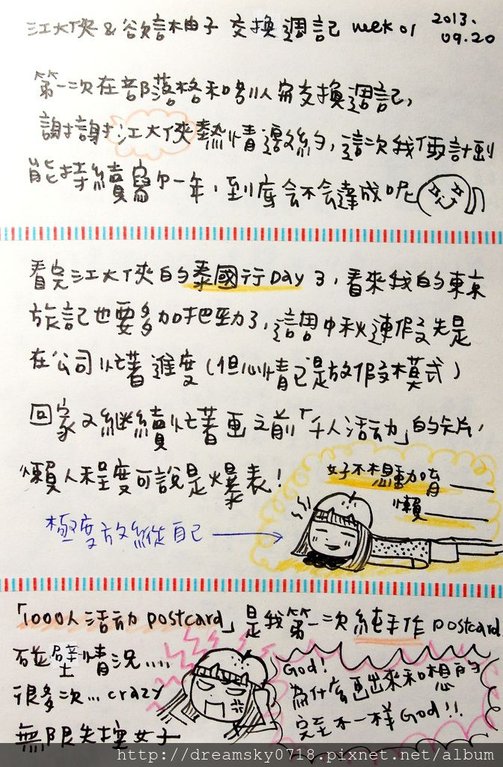 江大俠 & 欲言柚子 交換週記 week 01 2013.
09.20
第一次在部落格和別人寫交換週記,
謝謝江大俠熱情邀約, 這次我倆計劃
能持續寫一年, 到底會不會達成呢
看完江大俠的泰國行Day 3, 看來我的東京
旅記也要多加把勁了, 這週中秋連假先是
在公司忙著進度(但心情已是放假模式)
回家又繼續忙著畫之前「千人活動」的卡片,
懶人程度可說是爆表!
好不想動
懶
極度放縱自己
「1000人活動 postcard」是我第一次純手作 postcard
碰壁情況....
很多次... crazy
無限失控女子
God!
為什麼畫出來和想的
完全不一樣God!!
http://dreamsky0718.pixnet.net/album